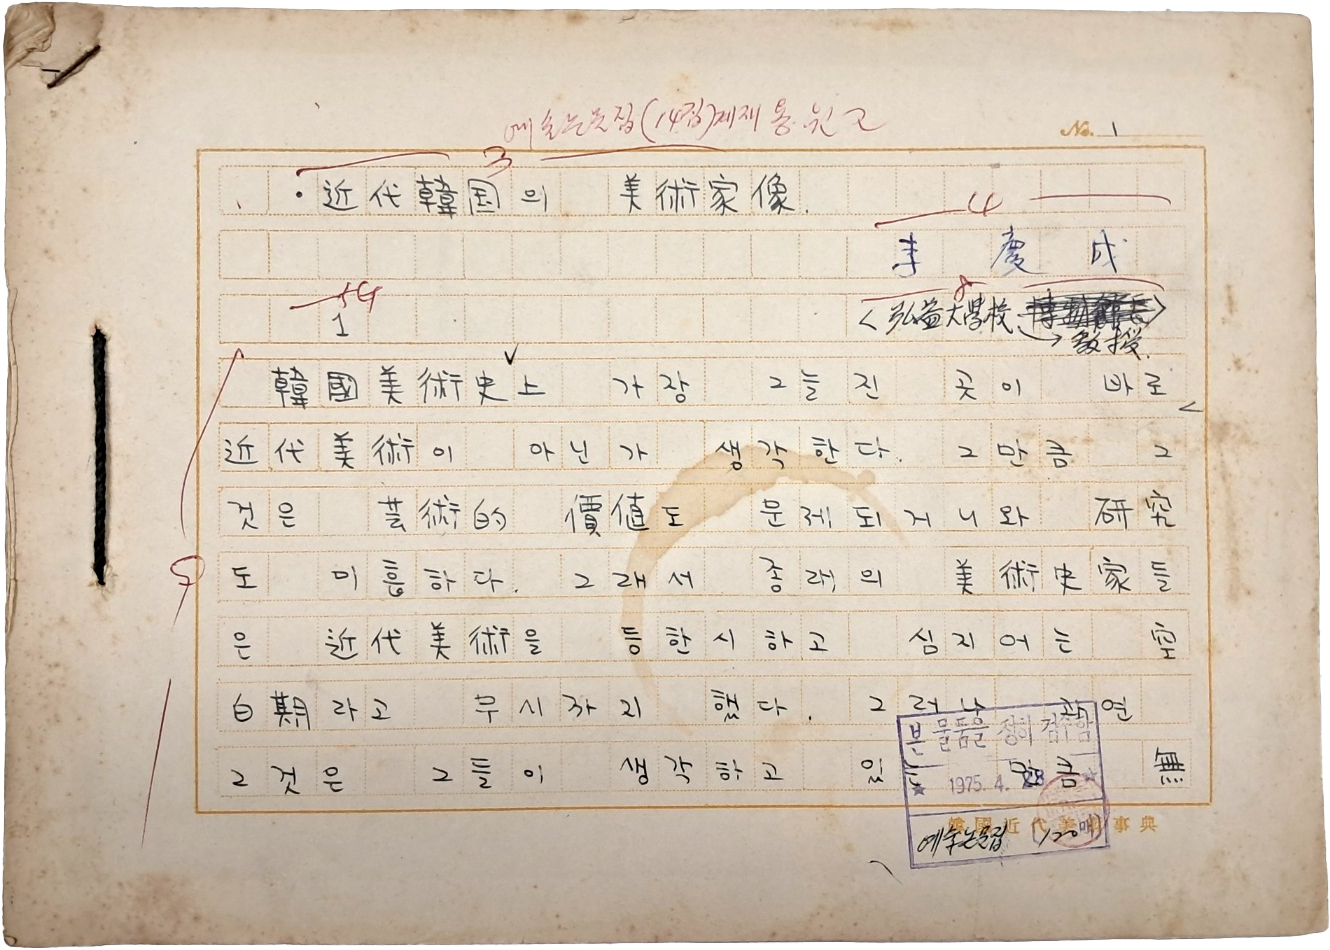 예술논문집(14집)게재용 원고
No. 1
3
近代韓国의 美術家像.
4
李慶成
8
<弘益大學校 教授>
1
韓國美術史上 가장 그늘진 곳이 바로
近代美術이 아닌가 생각한다. 그만큼 그
것은 芸術的 價値도 문제되거니와 研究
도 미흡하다. 그래서 종래의 美術史家들
은 近代美術을 등한시하고 심지어는 空
白期라고 무시까지 했다. 그러나 과연
그것은 그들이 생각하고 있는 만큼 無
본 물품을 정히 검수함
1975. 4. 28
예술논문집 120매
韓國近代美術事典